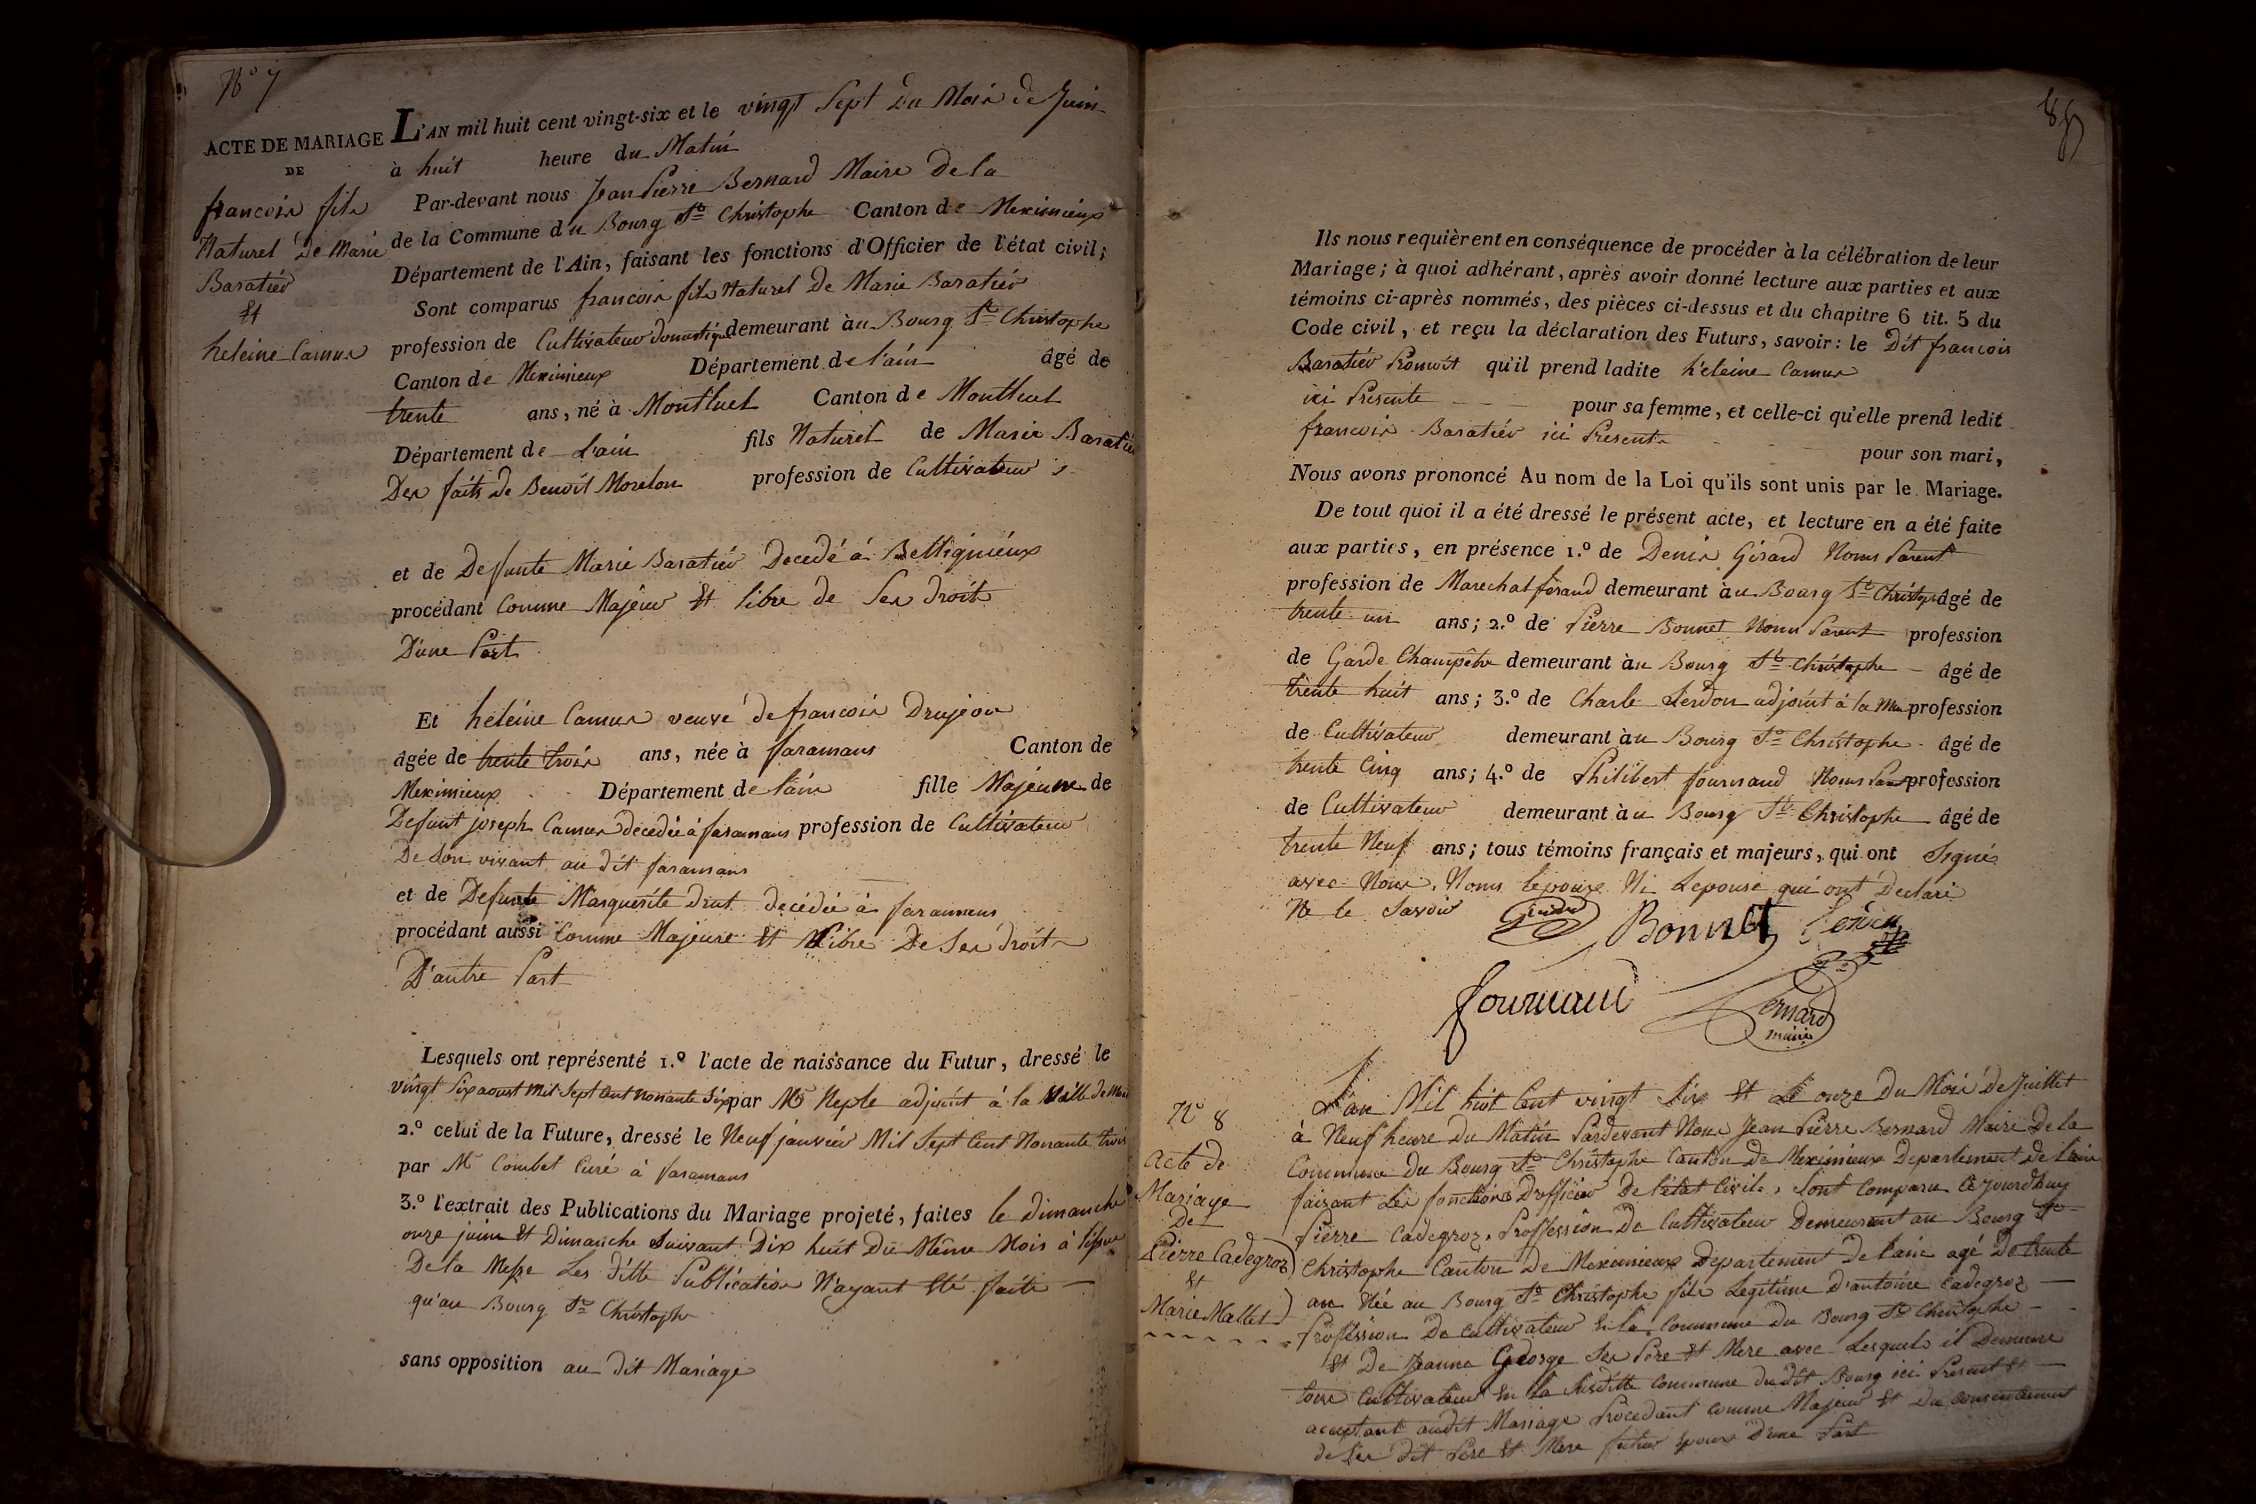 N° 7
ACTE DE MARIAGE
DE
francois fils
Naturel De Marie
Baratiér
Et
heleine Camus
L'AN mil huit cent vingt-six et le vingt Sept Du Mois de Juin
à huit heure du Matin
Par-devant nous Jean Pierre Bernard Maire De la
de la Commune du Bourg St Christophe Canton de Meximieux
Département de l'Ain, faisant les fonctions d'Officier de l'état civil;
Sont comparus francois fils Naturel De Marie Baratiér
profession de Cultivateur domestique demeurant àu Bourg St Christophe
Canton de Meximieux Département de l'ain âgé de
trente ans, né à Montluel Canton de Montluel
Département de L'ain fils Naturel de Marie Baratiér
Des faits de Benoit Morelon profession de Cultivateur
et de Defunte Marie Baratiér Decedé á Belligniéux
procédant Comme Majeur Et libre de Ses droits
D'une Part
Et heleine Camus veuve de francois Drujon
âgée de trente trois ans, née à faramans Canton de
Meximieux Département de l'ain fille Majeure de
Defunt joseph Camus décédée à faramans profession de Cultivateur
De Son vivant au dit faramans
et de Defunte Marguerite Drut decédée à faramans
procédant aussi Comme Majeure Et Libre De Ses droits
D'autre Part
Lesquels ont représenté 1.º l'acte de naissance du Futur, dressé le
vingt Six aoust Mil Sept Cent Nonante Six par Mr Neple adjoint à la Ville de
2.º celui de la Future, dressé le Neuf janviér Mil Sept Cent Nonante trois
par Mr Combet Curé à faramans
3.º l'extrait des Publications du Mariage projeté, faites le dimanche
onze juin Et Dimanche Suivant Dix huit Du Même Mois à l'issue
De la Messe Les ditte Publication N'ayant Eté faite
qu'au Bourg St Christophe
sans opposition au dit Mariage
Ils nous requièrent en conséquence de procéder à la célébration de leur
Mariage; à quoi adhérant, après avoir donné lecture aux parties et aux
témoins ci-après nommés, des pièces ci-dessus et du chapitre 6 tit. 5 du
Code civil, et reçu la déclaration des Futurs, savoir: le Dit francois
Baratiér qu'il prend ladite héleine Camus
ici Presente pour sa femme, et celle-ci qu'elle prend ledit
francois Baratiér ici Present
pour son mari,
Nous avons prononcé Au nom de la Loi qu'ils sont unis par le Mariage.
De tout quoi il a été dressé le présent acte, et lecture en a été faite
aux parties, en présence 1.º de Denis Girard Nons Parent
profession de Marechal ferand demeurant àu Bourg St Christophe âgé de
trente un ans; 2.º de Pierre Bonnet Nons Parent profession
de Garde Champêtre demeurant àu Bourg St Christophe âgé de
trente huit ans; 3.º de Charle adjoint à la profession
de Cultivateur demeurant àu Bourg St Christophe âgé de
trente Cinq ans; 4.º de Philibert fournand Nons profession
de Cultivateur demeurant àu Bourg St Christophe âgé de
trente Neuf ans; tous témoins français et majeurs, qui ont Signés
avec Nous, Nons lepoux Ni Lepouse qui ont Declaré
Ne le Savoir
Bonnet
fournand
Bernard
maire
N° 8
Acte de
Mariage
De
Pierre Cadegroz
Et
Marie Mallet
L'an Mil huit Cent vingt Six Et Le onze Du Mois De Juillet
à Neuf heure Du Matin Pardevant Nous Jean Pierre Bernard Maire De la
Commune Du Bourg St Christophe Canton De Meximieux Departement De l'ain
faisant Les fonctions D'officier De l'état Civile, Sont Comparu Ce Jourd'huy
Pierre Cadegroz, Proffession De Cultivateur Demeurant au Bourg St
Christophe Canton De Meximieux Département De l'ain agé De trente
an Née au Bourg St Christophe fils Legitime D'antoine Cadegroz
Proffession De Cultivateur En la Commune Du Bourg St Christophe
Et De Jeanne George Ses Pere Et Mere avec Lesquels il Demeure
tous Cultivateur En la Susditte Commune dudit Bourg ici Present Et
acceptant audit Mariage Procedant Comme Majeur Et Du Consentement
de Ses Dit Pere Et Mere futur Epoux D'une Part